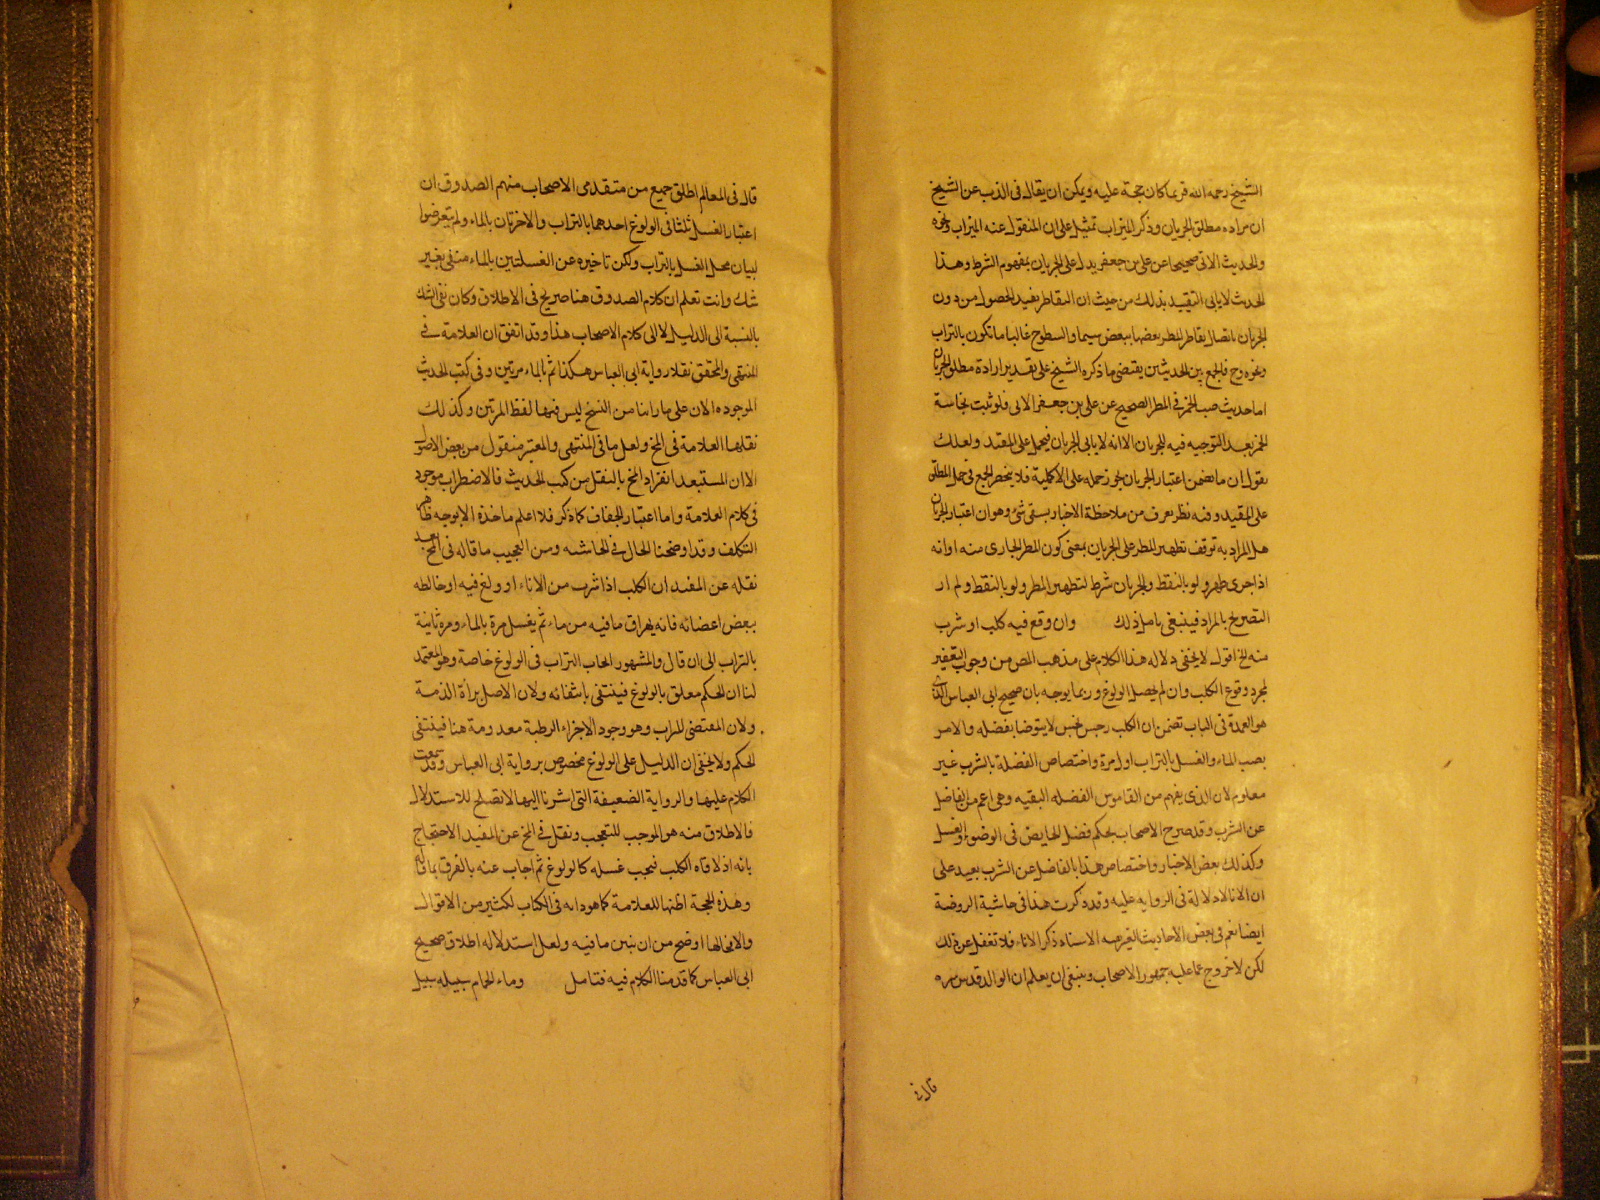 الشيخ رحمه الله فربما كان حجة عليه ويمكن ان يقال في الذب عن الشيخ
ان مراده مطلق الجريان وذكر الميزاب تمثيل على ان المنقول عنه الميزاب ونحوه
والحديث الاتي صحيحا عن علي بن جعفر يدل على الجريان بمفهوم الشرط وهذا
الحديث لا يابى التقييد بذلك من حيث ان التقاطر يفيد الحصول من دون
الجريان باتصال تقاطر المطر بعضها ببعض سيما والسطوح غالبا ما تكون بالتراب
ونحوه وح فالجمع بين الحديثين يقتضي ما ذكره الشيخ على تقدير ارادة مطلق الجريان
اما حديث صب الخمر في المطر الصحيح عن علي بن جعفر الاتي فلو ثبت نجاسة
الخمر بعد التوجيه فيه للجريان الا انه لا يابى الجريان فيحمل على المقيد ولعلك
تقول ان ما تضمن اعتبار الجريان يجوز حمله على الاكملية فلا ينحصر الجمع في حمل المطلق
على المقيد وفيه نظر يعرف من ملاحظة الاخبار بقى شئ وهو ان اعتبار الجريان
هل المراد به توقف تطهير المطر على الجريان بمعنى كون المطر الجاري منه او انه
اذا جرى طهر ولو بالنقط والجريان شرط لتطهير المطر ولو بالنقط ولم ار
التصريح بالمراد فينبغي تامل ذلك وان وقع فيه كلب او شرب
منه الخ اقول لا يخفى دلاله هذا الكلام على مذهب المص من وجوب التعفير
لمجرد وقوع الكلب وان لم يحصل الولوغ وربما يوجه بان صحيح ابي العباس الذي
هو العمدة في الباب تضمن ان الكلب رجس نجس لا يتوضا بفضله والامر
بصب الماء والغسل بالتراب اول مرة واختصاص الفضلة بالشرب غير
معلوم لان الذي يفهم من القاموس الفضله البقيه وهي اعم من الفاضل
عن الشرب وقد صرح الاصحاب بحكم فضل الحايض في الوضوء والغسل
وكذلك بعض الاخبار واختصاص هذا بالفاضل عن الشرب بعيد على
ان الانا لا دلالة في الروايه عليه وقد ذكرت هذا في حاشية الروضة
ايضا نعم في بعض الاحاديث الغير الاسناد ذكر الاناء فلا تغفل عن ذلك
لكن لا خروج عما عليه جمهور الاصحاب وينبغي ان يعلم ان الوالد قدس سره
قال في
قال في المعالم اطلق جميع من متقدمى الاصحاب منهم الصدوق ان
اعتبار الغسل ثلثا في الولوغ احدهما بالتراب والاخرتان بالماء ولم يتعرضوا
لبيان محل الغسل بالتراب ولكن تاخيره عن الغسلتين بالماء منتفي بغير
شك وانت تعلم ان كلام الصدوق هنا صريح في الاطلاق وكان نفى الشك
بالنسبة الى الدليل لا الى كلام الاصحاب هذا وقد اتفق ان العلامة في
المنتهى والمحقق نقلا رواية ابي العباس هكذا ثم بالماء مرتين وفي كتب الحديث
الموجوده الان على ما راينا من النسخ ليس فيها لفظ المرتين وكذلك
نقلها العلامة في المخ ولعل ما في المنتهى والمعتبر منقول من بعض الاصول
الا ان المستبعد انفراد المخ بالنقل من كتب الحديث فالاضطراب موجود
في كلام العلامة واما اعتبار الجفاف كما ذكر فلا اعلم ماخذه الا بوجه ظاهر
التكلف وقد اوضحنا الحال في الحاشيه ومن العجيب ما قاله في المخ بعد
نقله عن المفيد ان الكلب اذا شرب من الاناء او ولغ فيه او خالطه
ببعض اعضائه فانه يهراق ما فيه من ماء ثم يغسل مرة بالماء ومرة ثانية
بالتراب الى ان قال والمشهور ايجاب التراب في الولوغ خاصة وهو المعتمد
لنا ان الحكم معلق بالولوغ فينتفي بانتفائه ولان الاصل براة الذمة
ولان المقتضي للتراب وهو وجود الاجزاء الرطبة معدومة هنا فينتفي
الحكم ولا يخفى ان الدليل على الولوغ مخصوص برواية ابي العباس وقد سمعت
الكلام عليها والرواية الضعيفة التي اشرنا اليها لا تصلح للاستدلال
فالاطلاق منه هو الموجب للتعجب ونقل في المخ عن المفيد الاحتجاج
بانه اذا لاقاه الكلب فيجب غسله كالولوغ ثم اجاب عنه بالفرق بما قاله
وهذه الحجة اظنها للعلامة كما هو دابه في الكتاب لكثير من الاقوال
والامر لها اوضح من ان نبين ما فيه ولعل استدلاله اطلاق صحيح
ابي العباس كما قدمنا الكلام فيه فتامل وماء الحمام سبيله سبيل